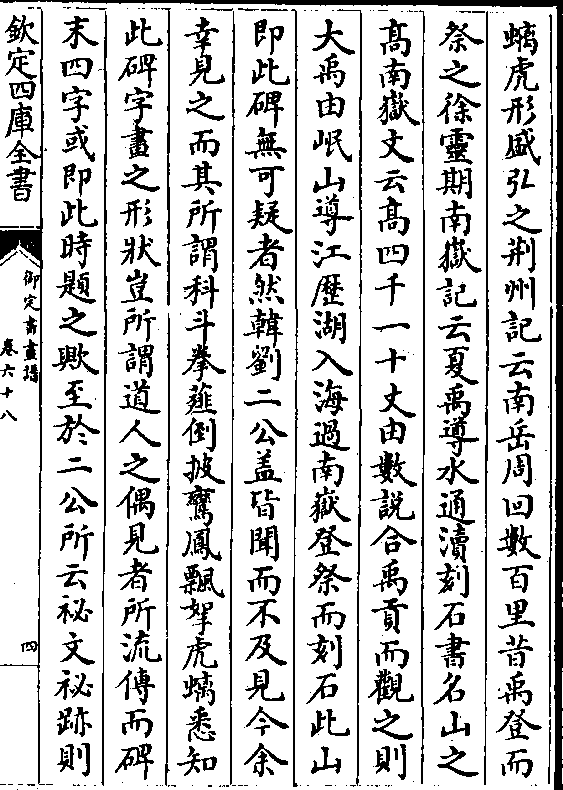 螭虎形盛弘之荆州記云南岳周回數百里昔禹登而
祭之徐靈期南嶽記云夏禹導水通瀆刻石書名山之
髙南嶽文云髙四千一十丈由數説合禹貢而觀之則
大禹由岷山導江歴湖入海過南嶽登祭而刻石此山
即此碑無可疑者然韓劉二公盖皆聞而不及見今余
幸見之而其所謂科斗拳薤倒披鸞鳳飄拏虎螭悉知
此碑字畫之形狀豈所謂道人之偶見者所流傳而碑
末四字或即此時題之歟至於二公所云祕文祕跡則
欽定四庫全書
御定書畫譜
卷六十八
四